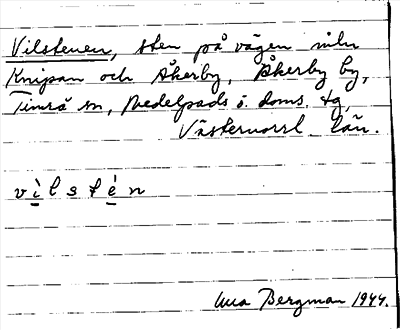 Vilstenen, sten på vägen mln
Knipan och Åkerby, Åkerby by,
Timrå sn, Medelpads ö. doms. tg,
Västernorrl. län.
v ì l s t é n
Bergman 1944.